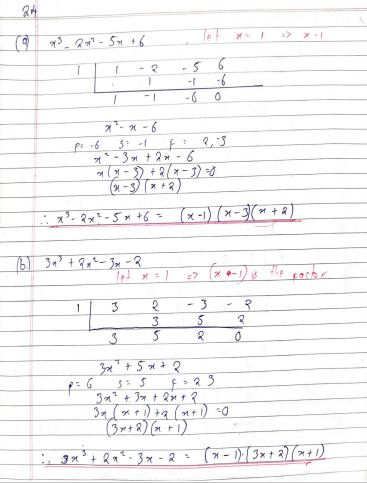 24
(a) x³ - 2x² - 5x + 6 let x = 1 => x-1
1 | 1 -2 -5 6
1 -1 -6
1 -1 -6 0
x² - x - 6
p = -6 s = -1 f = 2, -3
x² - 3x + 2x - 6
x(x-3) + 2(x-3) = 0
(x-3) (x+2)
∴ x³ - 2x² - 5x + 6 = (x-1) (x-3) (x+2)
(b) 3x³ + 2x² - 3x - 2
let x = 1 => (x-1) is the factor
1 | 3 2 -3 -2
3 5 2
3 5 2 0
3x² + 5x + 2
p = 6 s = 5 f = 2 3
3x² + 3x + 2x + 2
3x (x+1) + 2 (x+1) = 0
(3x+2) (x+1)
∴ 3x³ + 2x² - 3x - 2 = (x-1) (3x+2) (x+1)